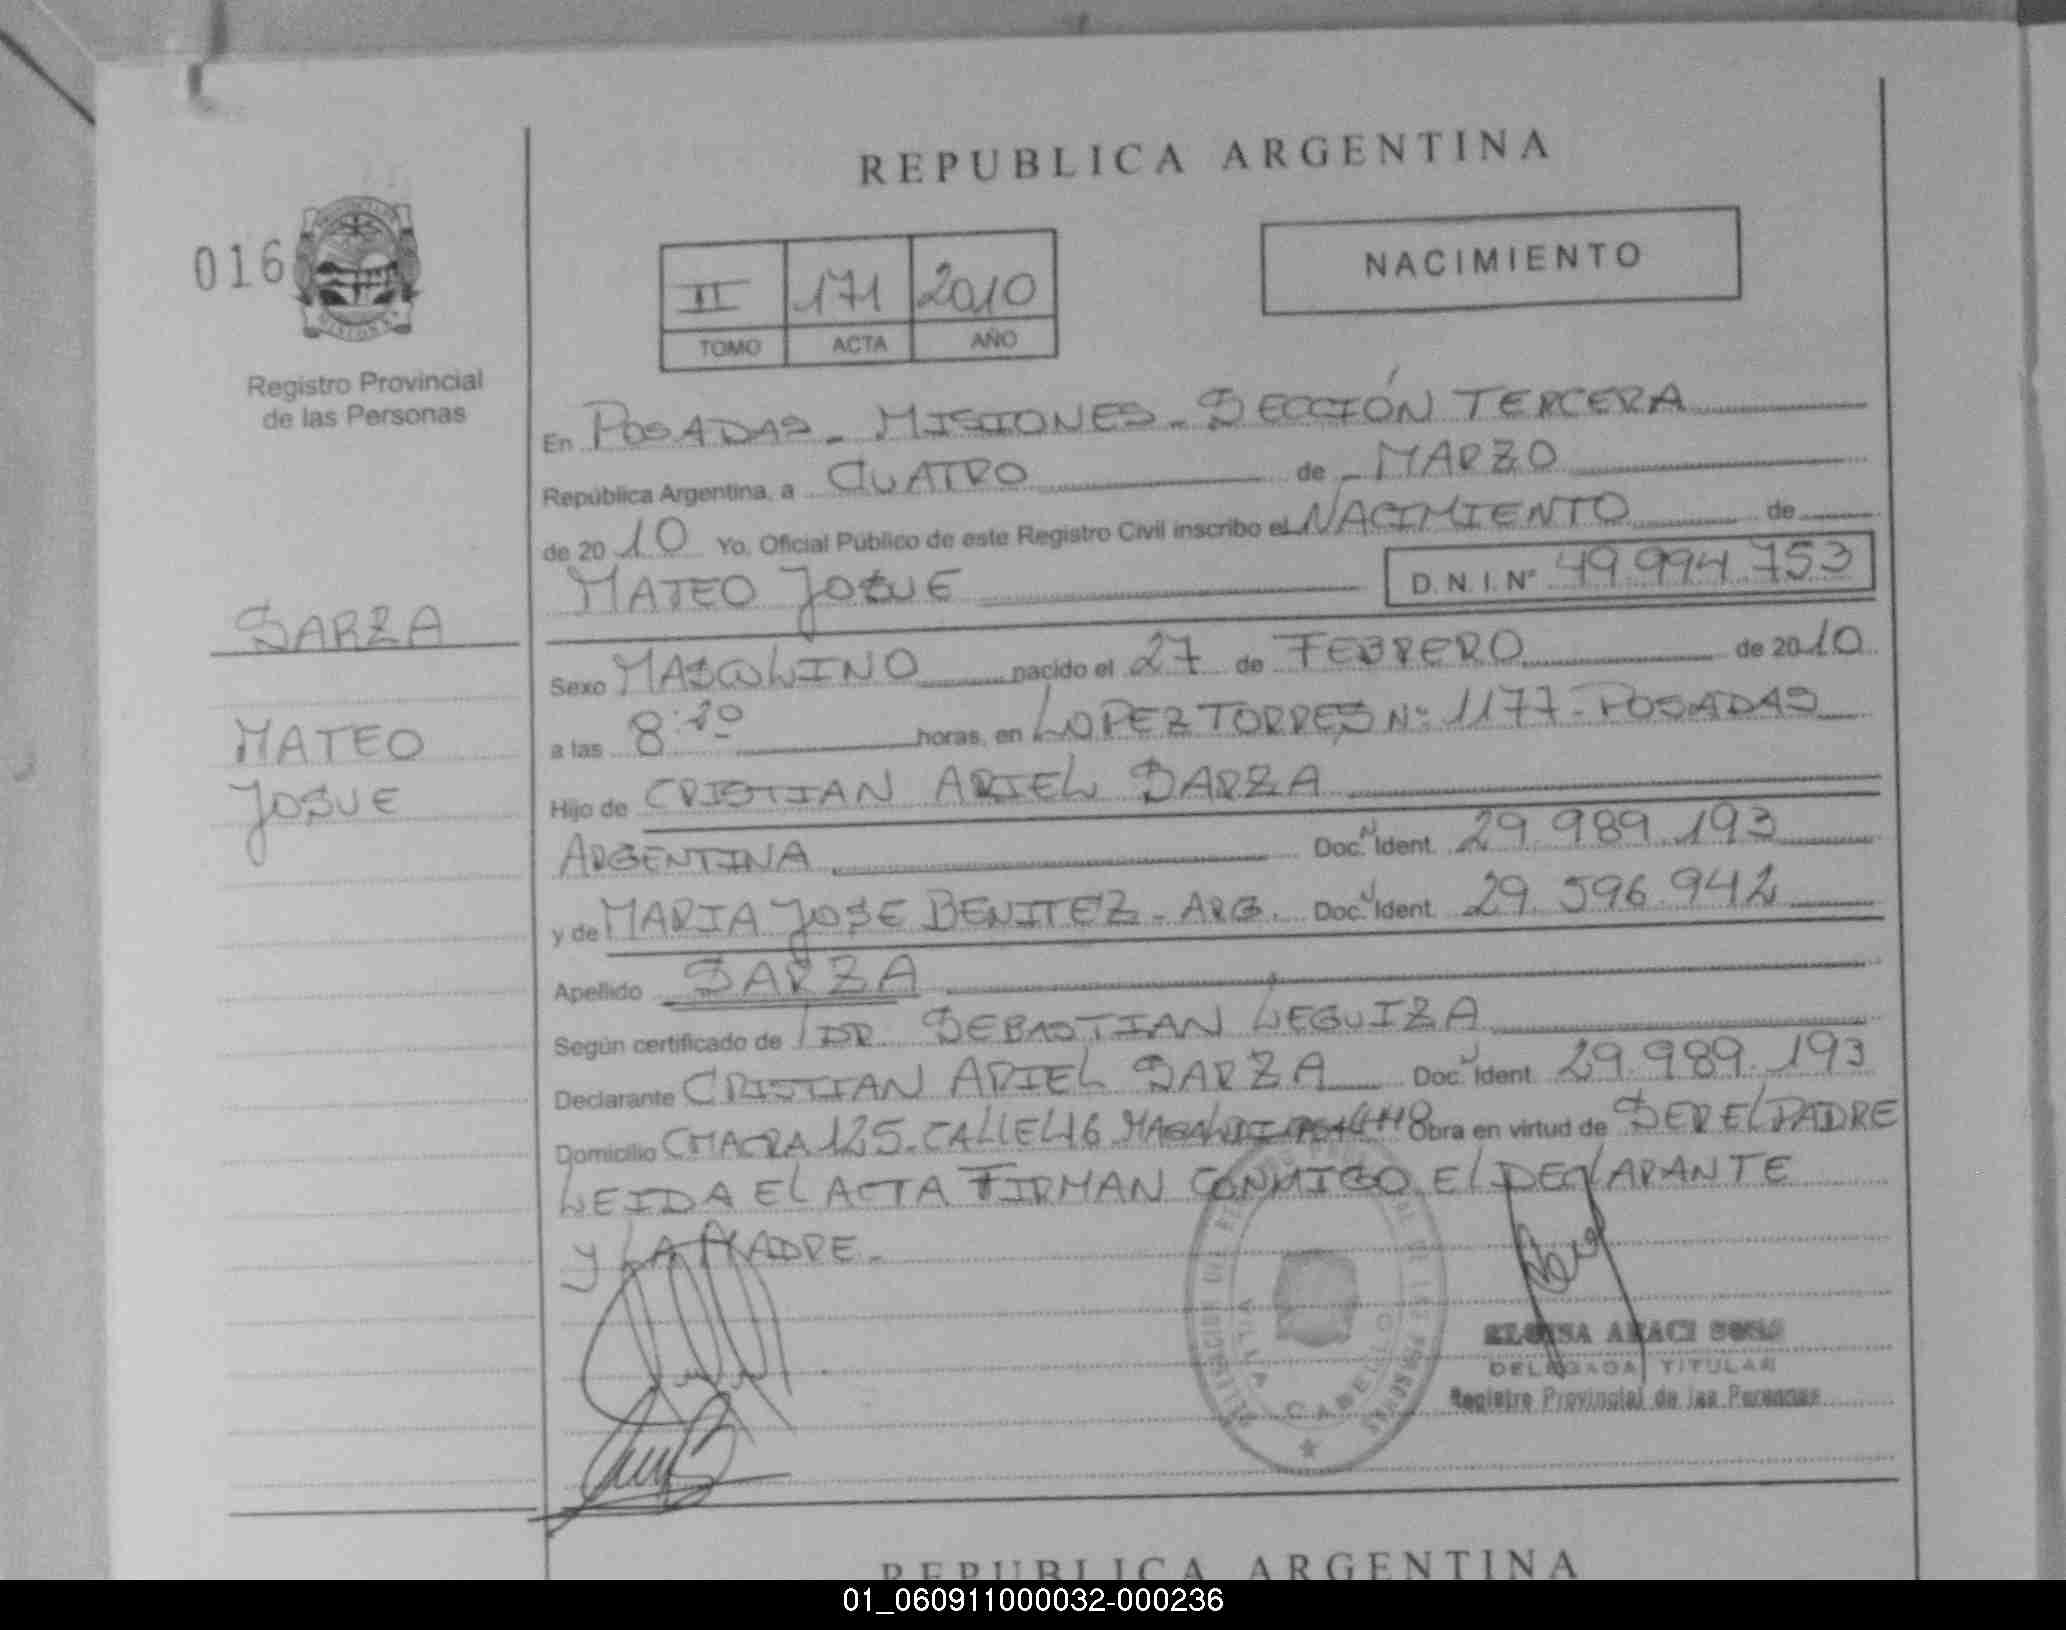 REPUBLICA ARGENTINA
016
NACIMIENTO
II 171 2010
TOMO ACTA AÑO
Registro Provincial
de las Personas
En POSADAS - MISIONES - SECCIÓN TERCERA
República Argentina, a CUATRO de MARZO
de 20 10 Yo, Oficial Público de este Registro Civil inscribo el NACIMIENTO de
MATEO JOSUE D.N.I. Nº 49.994.753
SARZA
MATEO
JOSUE
Sexo MASCULINO nacido el 27 de FEBRERO de 2010
a las 8:20 horas, en LOPEZ TORRES Nº 1177 - POSADAS
Hijo de CRISTIAN ARIEL SARZA
ARGENTINA Doc. N Ident. 29.989.193
y de MARIA JOSE BENITEZ - ARG. Doc. N Ident. 29.596.942
Apellido SARZA
Según certificado de DR. SEBASTIAN LEGUIZA
Declarante CRISTIAN ARIEL SARZA Doc. N Ident. 29.989.193
Domicilio CHACRA 125 - CALLE 46 Obra en virtud de SER EL PADRE
LEIDA EL ACTA FIRMAN CONMIGO EL DECLARANTE
Y LA MADRE -
VILLA CABELLO
DELEGADA TITULAR
Registro Provincial de las Personas
REPUBLICA ARGENTINA
01_060911000032-000236